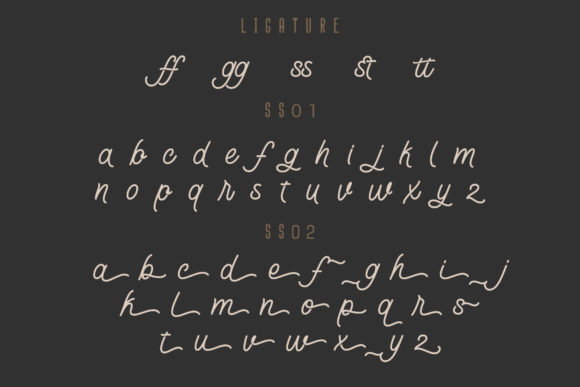 LIGATURE
ff gg ss st tt
SS01
a b c d e f g h i j k l m
n o p q r s t u v w x y z
SS02
a b c d e f g h i j
k l m n o p q r s
t u v w x y z